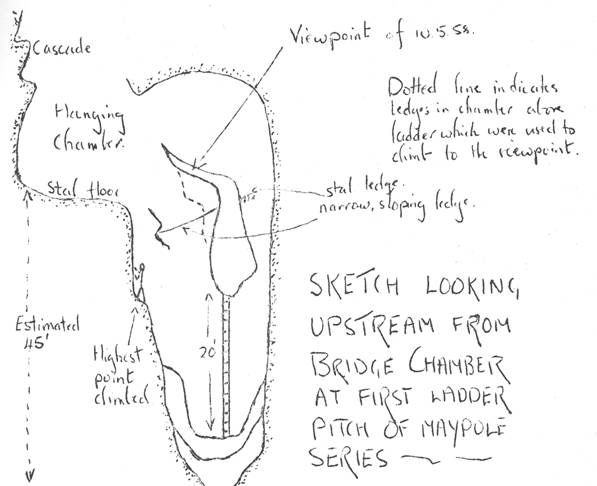 Viewpoint of 10.5.58.
Cascade
Dotted line indicates
ledges in chamber above
ladder which were used to
climb to the viewpoint.
Hanging
Chamber.
Stal floor
stal ledge.
narrow, sloping ledge.
Estimated
45'
20'
Highest
point
climbed
SKETCH LOOKING
UPSTREAM FROM
BRIDGE CHAMBER
AT FIRST LADDER
PITCH OF MAYPOLE
SERIES